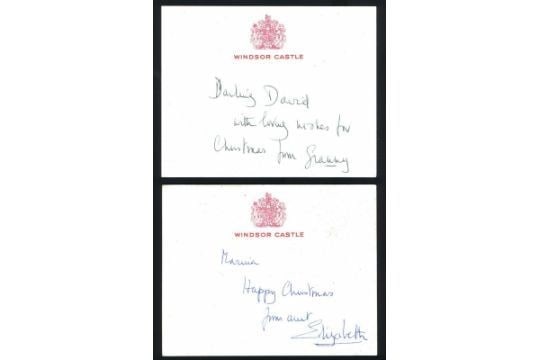 WINDSOR CASTLE
Darling David
with loving wishes for
Christmas from Granny
WINDSOR CASTLE
Marina
Happy Christmas
from aunt
Elizabeth